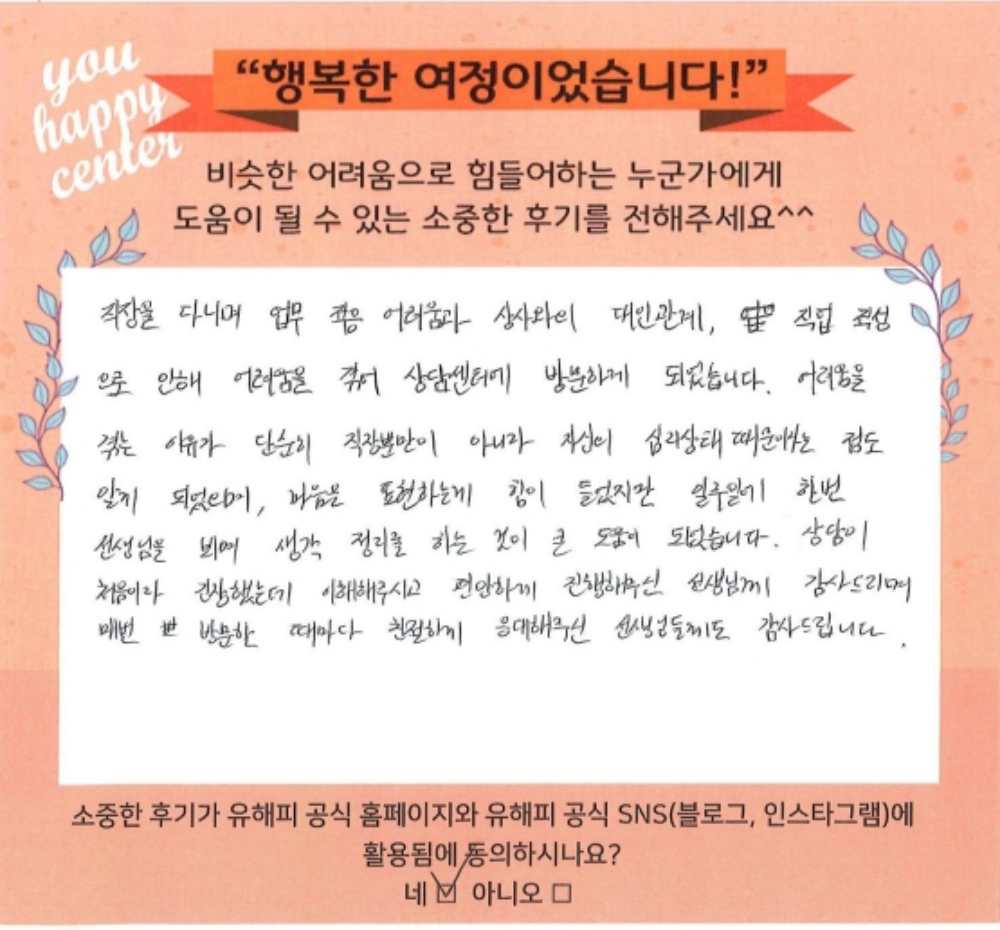 you
happy
center
“행복한 여정이었습니다!”
비슷한 어려움으로 힘들어하는 누군가에게
도움이 될 수 있는 소중한 후기를 전해주세요^^
직장을 다니며 업무 어려움과 상사와의 대인관계, 직업 적성
으로 인해 어려움을 겪어 상담센터에 방문하게 되었습니다. 어려움을
겪는 이유가 단순히 직장뿐만이 아니라 자신의 심리상태 때문이라는 점도
알게 되었으며, 마음을 표현하는게 힘이 들었지만 일주일에 한번
선생님을 뵈며 생각 정리를 하는 것이 큰 도움이 되었습니다. 상담이
처음이라 긴장했는데 이해해주시고 편안하게 진행해주신 선생님께 감사드리며
매번 방문한 때마다 친절하게 응대해주신 선생님들께도 감사드립니다.
소중한 후기가 유해피 공식 홈페이지와 유해피 공식 SNS(블로그, 인스타그램)에
활용됨에 동의하시나요?
네 ☑ 아니오 □